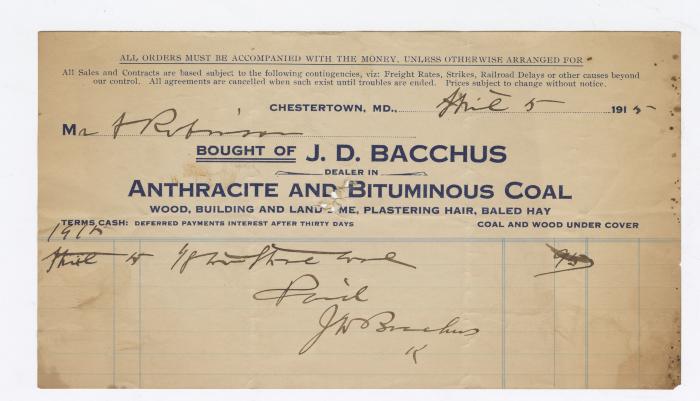 ALL ORDERS MUST BE ACCOMPANIED WITH THE MONEY, UNLESS OTHERWISE ARRANGED FOR
All Sales and Contracts are based subject to the following contingencies, viz: Freight Rates, Strikes, Railroad Delays or other causes beyond
our control. All agreements are cancelled when such exist until troubles are ended. Prices subject to change without notice.
CHESTERTOWN, MD., April 5 1915
Mr A Robinson
BOUGHT OF J. D. BACCHUS
DEALER IN
ANTHRACITE AND BITUMINOUS COAL
WOOD, BUILDING AND LAND LIME, PLASTERING HAIR, BALED HAY
TERMS CASH: DEFERRED PAYMENTS INTEREST AFTER THIRTY DAYS COAL AND WOOD UNDER COVER
1915
April 5 1/8 ton Stove Coal 95
Paid
J D Bacchus
K